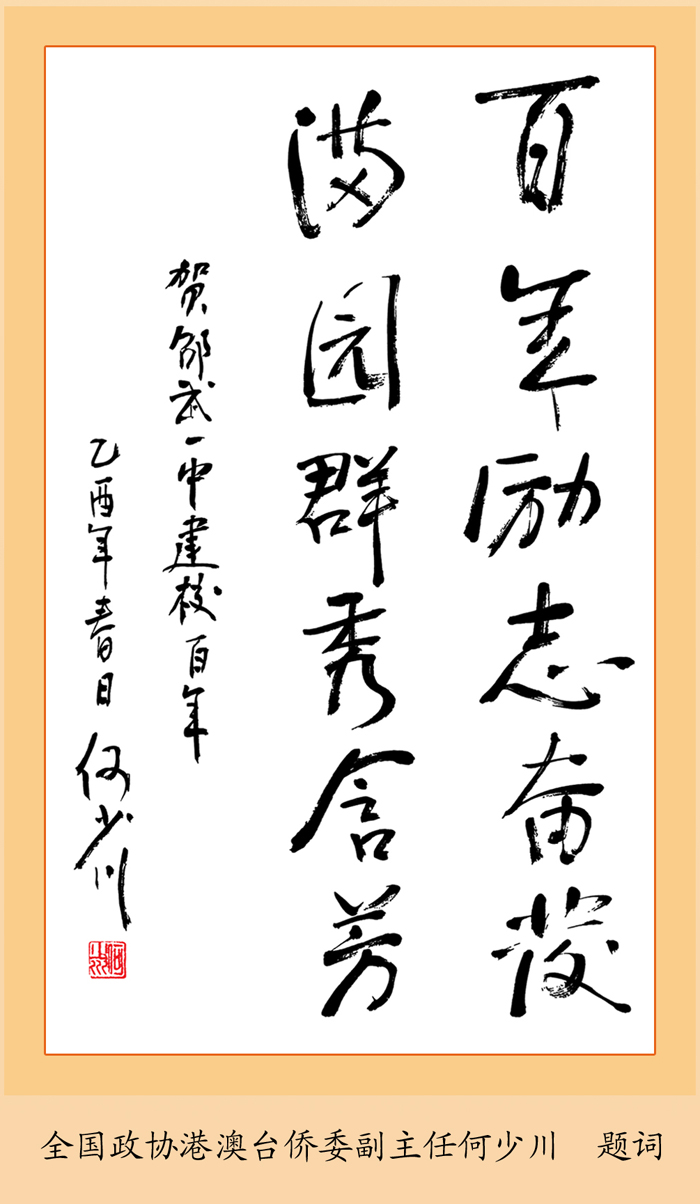 百年励志奋发
满园群秀含芳
贺邵武一中建校百年
乙酉年春日 何少川
全国政协港澳台侨委副主任何少川 题词